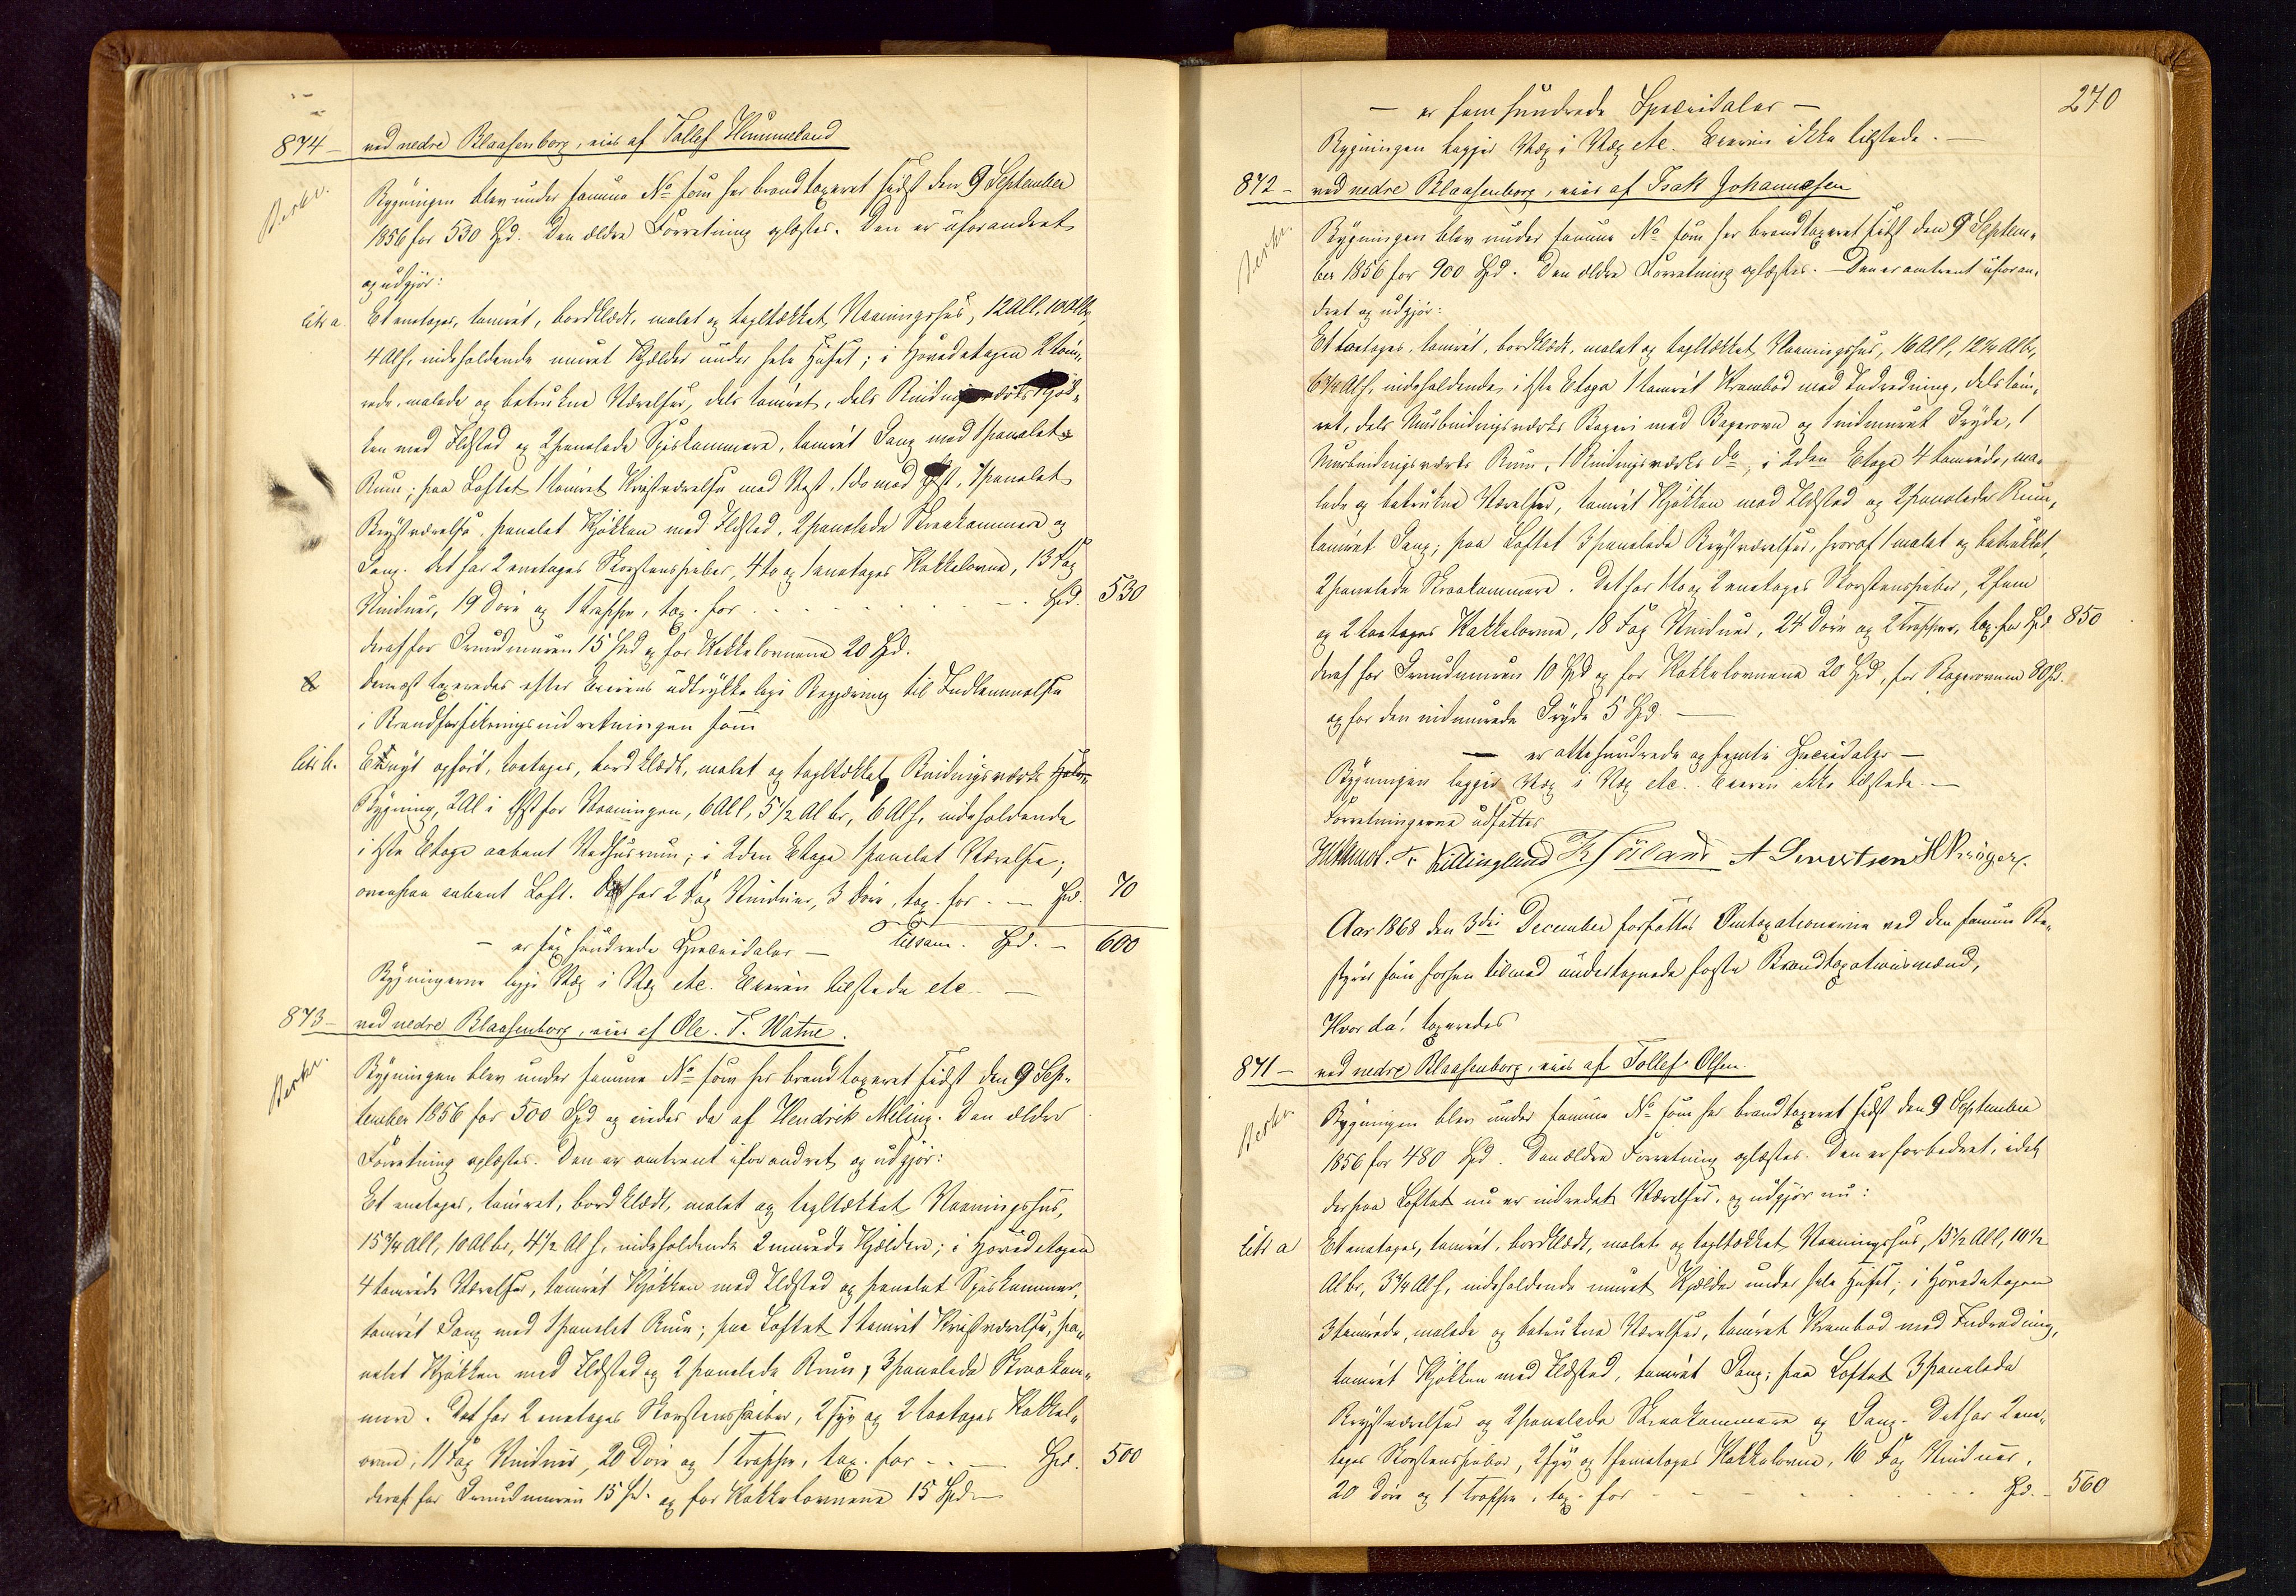 874 – ved nedre Blaasenborg, eies af Tollef Hemmeland
Beskr.
Bygningen blev under samme No som her brandtaxeret sidst den 9 September
1856 for 530 Spd. Den ældre Forretning oplæstes. Den er uforandret
og udgjør:
litr a. Et enetages, tømret, bordklædt, malet og tagltækket Vaaningshus, 12 Al l, 10 Al br,
4 Al h, indeholdende muret Kjelder under hele Huset; i Hovedetagen 2 tøm-
rede, malede og betrukne Værelser, dels tømret, dels Bindingsværks Kjøk-
ken med Ildsted og 2 panelede Spiskammere, tømret Gang med 1 panelet
Rum; paa Loftet 1 tømret Kvistværelse med Kvist, 1 do med Kvist, 1 panelet
Brystværelse, panelet Kjøkken med Ildsted, 2 panelede Skraakammere og
Gang. Det har 2 enetages Skorstenspiber, 4 to og 1 enetages Kakkelovne, 13 Fag
Vinduer, 19 Døre og 1 Trappe, tax. for . . . Spd. 530
deraf for Grundmuren 15 Spd og for Kakkelovnene 20 Spd.
dernæst taxeredes efter Eierens udtrykkelige Begjæring til Indlemmelse
i Brandforsikringsindretningen som
litr b. Et nyt opført, toetages, bordklædt, malet og tagltækket Bindingsværks
Bygning, 2 Al i Øst for Vaaningen, 6 Al l, 5 1/2 Al br, 6 Al h, indeholdende
i 1ste Etage aabent Vedhusrum; i 2den Etage 1 panelet Værelse;
ovenpaa aabent Loft. Det har 2 Fag Vinduer, 3 Døre, tax. for . – Spd. 70
– er sex hundrede Speciedaler – tilsam. Spd. – 600
Bygningerne ligge Væg i Væg etc. Eieren tilstede etc. –
873 – ved nedre Blaasenborg, eies af Ole T. Watne.
Beskr.
Bygningen blev under samme No som her brandtaxeret sidst den 9 Sep-
tember 1856 for 500 Spd og eiedes da af Hendrik Meling. Den ældre
Forretning oplæstes. Den er omtrent uforandret og udgjør:
Et enetages, tømret, bordklædt, malet og tagltækket Vaaningshus,
15 3/4 Al l, 10 Al br, 4 1/2 Al h, indeholdende 2 murede Kjeldere; i Hovedetagen
4 tømrede Værelser, tømret Kjøkken med Ildsted og panelet Spiskammer,
tømret Gang med 1 panelet Rum; paa Loftet 1 tømret Kvistværelse, pa-
nelet Kjøkken med Ildsted og 2 panelede Rum, 3 panelede Skraakam-
mere. Det har 2 enetages Skorstenspiber, 2 fyr og 2 toetages Kakkel-
ovne, 11 Fag Vinduer, 20 Døre og 1 Trappe, tax. for . . – Spd. 500
deraf for Grundmuren 15 Spd. og for Kakkelovnene 15 Spd. –
270
– er fem hundrede Speciedaler –
Bygningen ligger Væg i Væg etc. Eieren ikke tilstede. –
872 – ved nedre Blaasenborg, eies af Isak Johannesen
Beskr.
Bygningen blev under samme No som her brandtaxeret sidst den 9 Septem-
ber 1856 for 900 Spd. Den ældre Forretning oplæstes. – Den er omtrent uforan-
dret og udgjør:
Et toetages, tømret, bordklædt, malet og tagltækket Vaaningshus, 16 Al l, 12 1/4 Al br,
6 3/4 Al h, indeholdende i 1ste Etage 1 tømret Krambod med Indredning, dels tøm-
ret, dels Murbindingsværks Bageri med Bagerovn og 1 indmuret Gryde, 1
Murbindingsværks Rum, 1 Bindingsværks do; i 2den Etage 4 tømrede, ma-
lede og betrukne Værelser, tømret Kjøkken med Ildsted og 2 panelede Rum,
tømret Gang; paa Loftet 3 panelede Brystværelser, hvoraf 1 malet og betrukket,
2 panelede Skraakammere. Det har 1 to og 2 enetages Skorstenspiber, 2 fem
og 2 toetages Kakkelovne, 18 Fag Vinduer, 24 Døre og 2 Trapper, tax. for Spd. 850
deraf for Grundmuren 10 Spd og for Kakkelovnene 20 Spd, for Bagerovnen 80 Spd.
og for den indmurede Gryde 5 Spd. –
– er ottehundrede og femti Speciedaler –
Bygningen ligger Væg i Væg etc. Eieren ikke tilstede. –
Forretningerne udsattes
Killingland A Sivertsen H Krüger.
Aar 1868 den 3die December fortsattes Omtaxationerne ved den samme Be-
styrer som forhen tilmed undertegnede faste Brandtaxationsmænd,
Hvor da! taxeredes
871 – ved nedre Blaasenborg, eies af Tollef Olsen
Beskr.
Bygningen blev under samme No som her brandtaxeret sidst den 9 September
1856 for 480 Spd. Den ældre Forretning oplæstes. Den er forbedret, idet
der paa Loftet nu er indredet Værelser, og udgjør nu:
litr a Et enetages, tømret, bordklædt, malet og tagltækket Vaaningshus, 15 1/2 Al l, 10 1/2
Al br, 3 3/4 Al h, indeholdende muret Kjelder under hele Huset; i Hovedetagen
3 tømrede, malede og betrukne Værelser, tømret Krambod med Indredning,
tømret Kjøkken med Ildsted, tømret Gang; paa Loftet 3 panelede
Brystværelser og 2 panelede Skraakammere og Gang. Det har 2 ene-
tages Skorstenspiber, 2 fyr og 1 femetages Kakkelovne, 16 Fag Vinduer,
20 Døre og 1 Trappe, tax. for . . . Spd. – 560